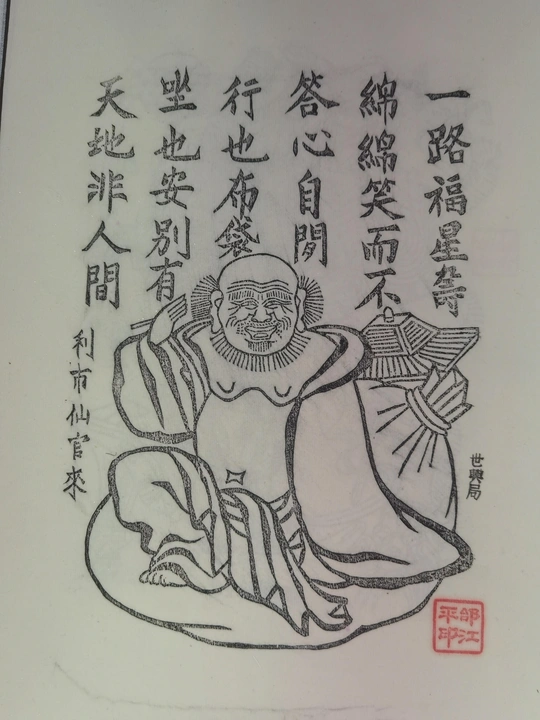 一路福星壽
綿綿笑而不
答心自閒
行也布袋
坐也安別有
天地非人間
利市仙官來
世興局
邰江平印